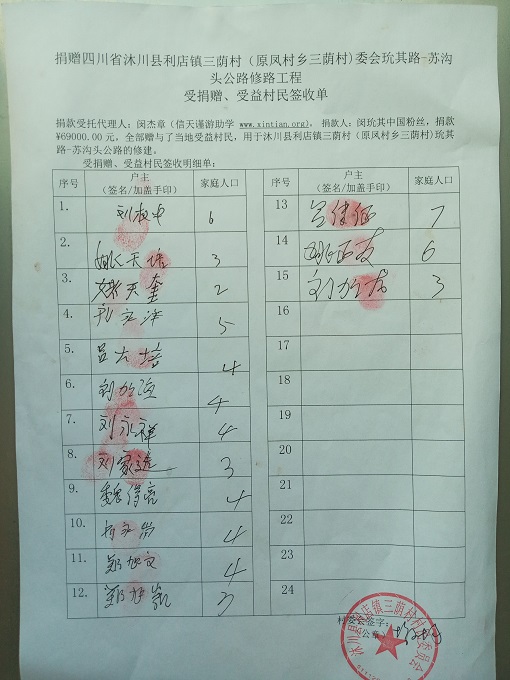 捐赠四川省沐川县利店镇三荫村（原凤村乡三荫村)委会玧其路-苏沟
头公路修路工程
受捐赠、受益村民签收单
捐款受托代理人：闵杰章（信天谨游助学 www.xintian.org)，捐款人：闵玧其中国粉丝，捐款
¥69000.00 元，全部赠与了当地受益村民，用于沐川县利店镇三荫村（原凤村乡三荫村)玧其
路-苏沟头公路的修建。
受捐赠、受益村民签收明细单：
序号 户主 家庭人口 序号 户主 家庭人口
（签名/加盖手印） （签名/加盖手印）
1. 6 13 7
2. 姚天培 3 14 6
3. 姚天奎 2 15 3
4. 5 16
5. 吕大培 4 17
6. 4 18
7. 刘永祥 4 19
8. 刘家选 3 20
9. 4 21
10. 4 22
11. 郑旭文 4 23
12. 郑旭凯 3 24
村委会签字：
公章
沐川县利店镇三荫村村民委员会